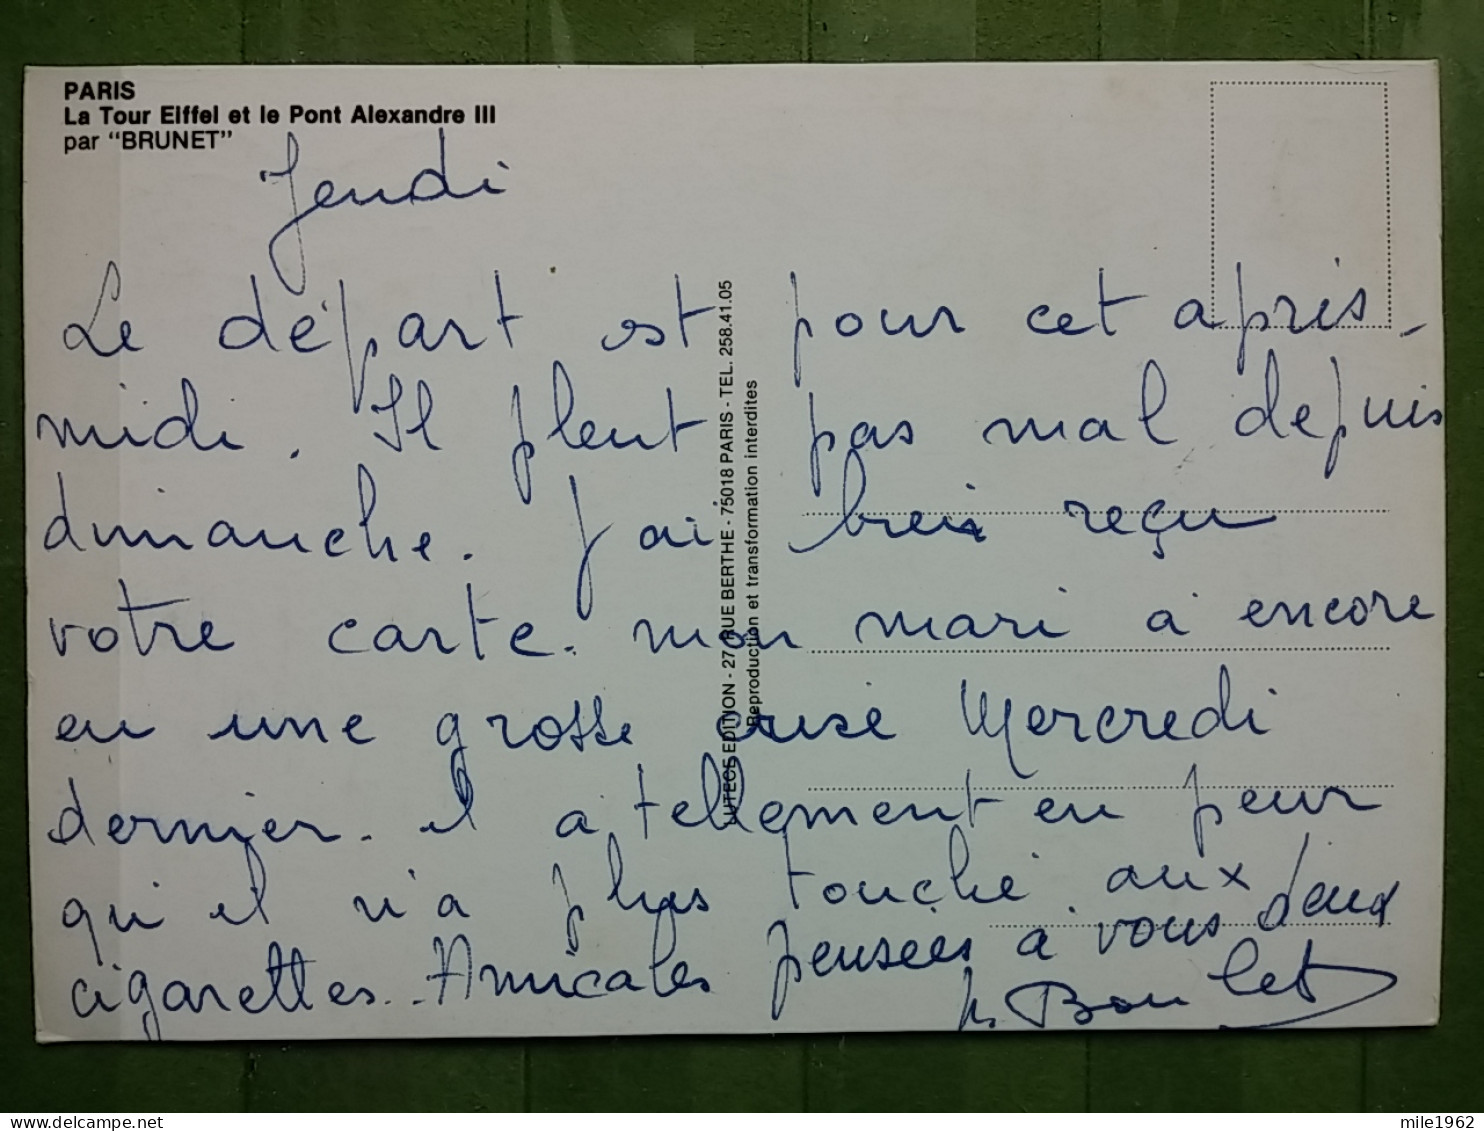 PARIS
La Tour Eiffel et le Pont Alexandre III
par "BRUNET"
Jeudi
Le départ est pour cet après-
midi. Il pleut pas mal depuis
dimanche. J'ai bien reçu
votre carte. mon mari a encore
eu une grosse crise Mercredi
dernier. il a tellement eu peur
qu'il n'a plus touché aux
cigarettes.. Amicales pensées à vous deux
Boulet
LUTECE EDITION - 27, RUE BERTHE - 75018 PARIS - TEL. 258.41.05
Reproduction et transformation interdites
mile1962